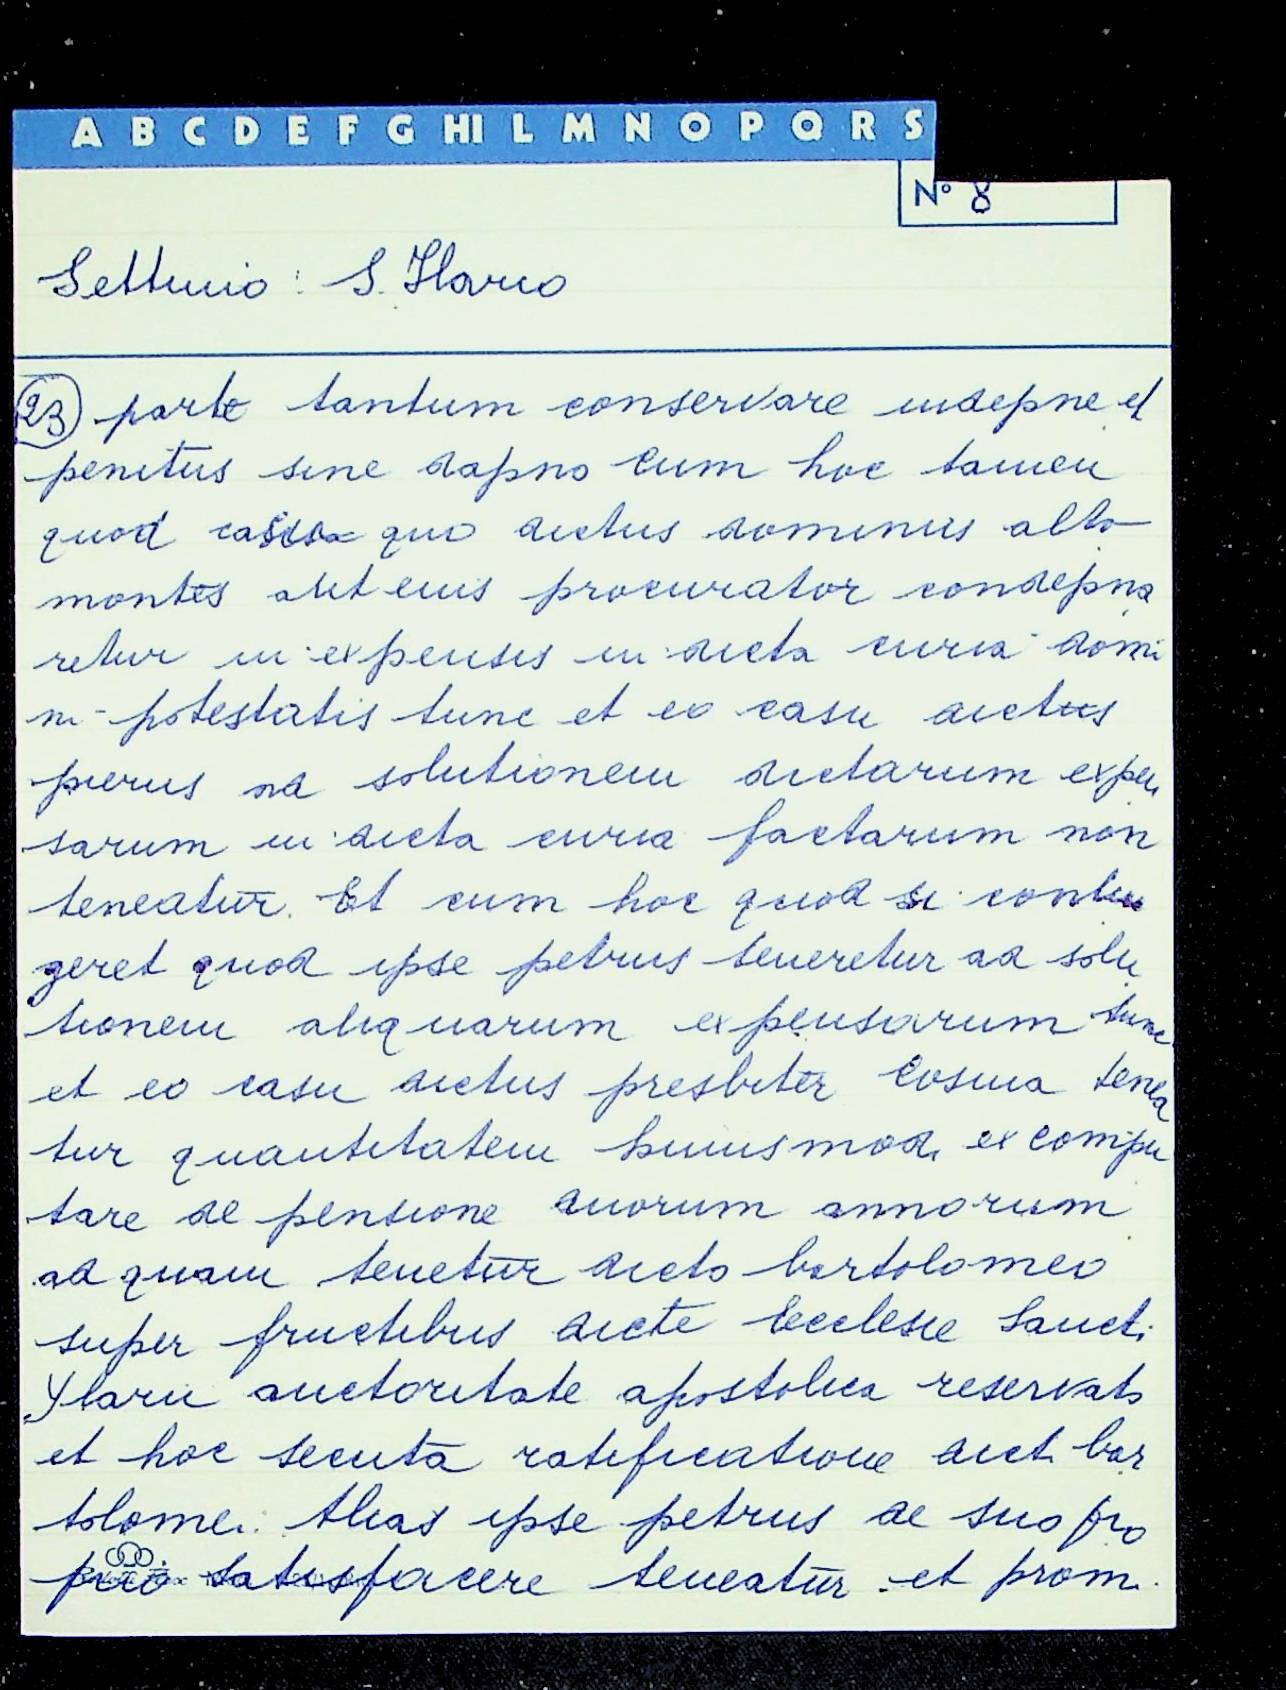 A B C D E F G HI L M N O P Q R S
N° 8
Settimo : S. Ilario
23 parte tantum conservare indepne et
penitus sine dapno cum hoc tamen
quod casu quo dictus dominus alto
montes aut eius procurator condepna
retur in expensis in dicta curia domi
ni potestatis tunc et eo casu dictus
pierus ad solutionem dictarum expen
sarum in dicta curia factarum non
teneatur. Et cum hoc quod si contin
geret quod ipse petrus teneretur ad solu
tionem aliquarum expensarum tunc
et eo casu dictus presbiter Cosma tenea
tur quantitatem huiusmodi excompu
tare de pensione duorum annorum
ad quam tenetur dicto bartolomeo
super fructibus dicte Ecclesie Sancti
Ylarii auctoritate apostolica reservata
et hoc secuta ratificatione dicti bar
tolomei. Alias ipse petrus de suo pro
prio satisfacere teneatur et prom.